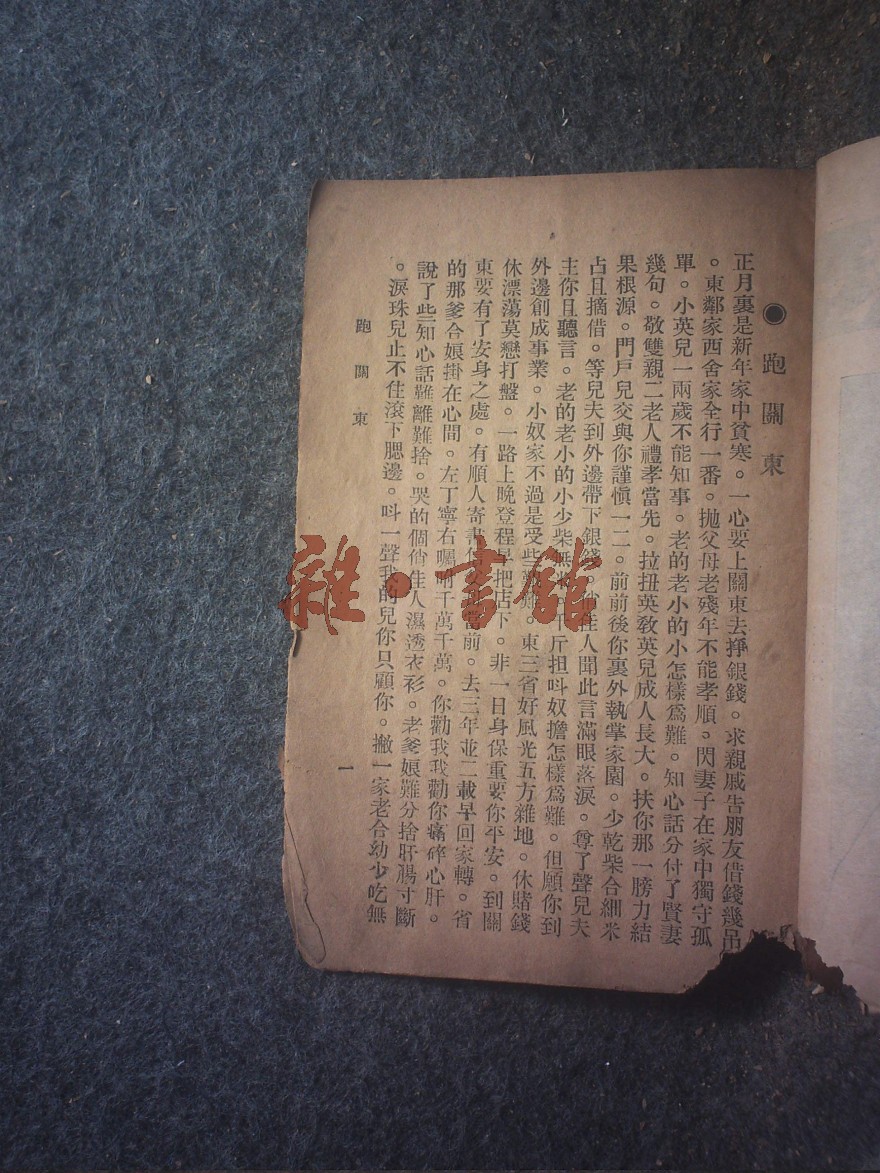 ◉跑關東
正月裏是新年家中貧寒。一心要上關東去掙銀錢。求親戚告朋友借錢幾吊
。東鄰家西舍家全行一番。拋父母老殘年不能孝順。閃妻子在家中獨守孤
單。小英兒一兩歲不能知事。老的老小的小怎樣爲難。知心話分付了賢妻
幾句。敬雙親二老人禮孝當先。拉扭英教英兒成人長大。扶你那一膀力結
果根源。門戶兒交與你謹慎一二。前前後你裏外執掌家園。少乾柴合細米
占且摘借。等兒夫到外邊帶下銀錢。佳人聞此言滿眼落淚。尊了聲兒夫
主你且聽言。老的老小的小少柴無斤担呌奴擔怎樣爲難。但願你到
外邊創成事業。小奴家不過是受些難。東三省好風光五方雜地。休賭錢
休漂蕩莫戀打盤。一路上晚登程早把店下。非一日身保重要你平安。到關
東要有了安身之處。有順人寄書當前。去三年並二載早回家轉。省
的那爹合娘掛在心間。左丁寧右囑咐千萬千萬。你勸我我勸你痛碎心肝。
說了些知心話難離難捨。哭的個俏佳人濕透衣衫。老爹娘難分捨肝腸寸斷
。淚珠兒止不住滾下腮邊。呌一聲我的兒你只顧你。撇一家老合幼少吃無
跑關東
一
雜·書館